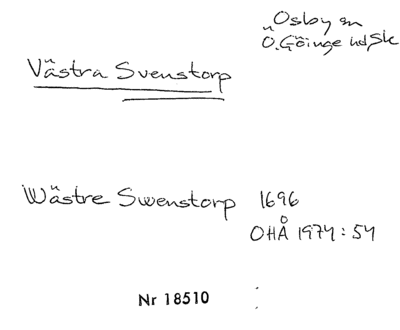 Osby sn
Ö. Göinge hd Sk
Västra Svenstorp
Wästre Swenstorp 1696
OHÅ 1974:54
Nr 18510